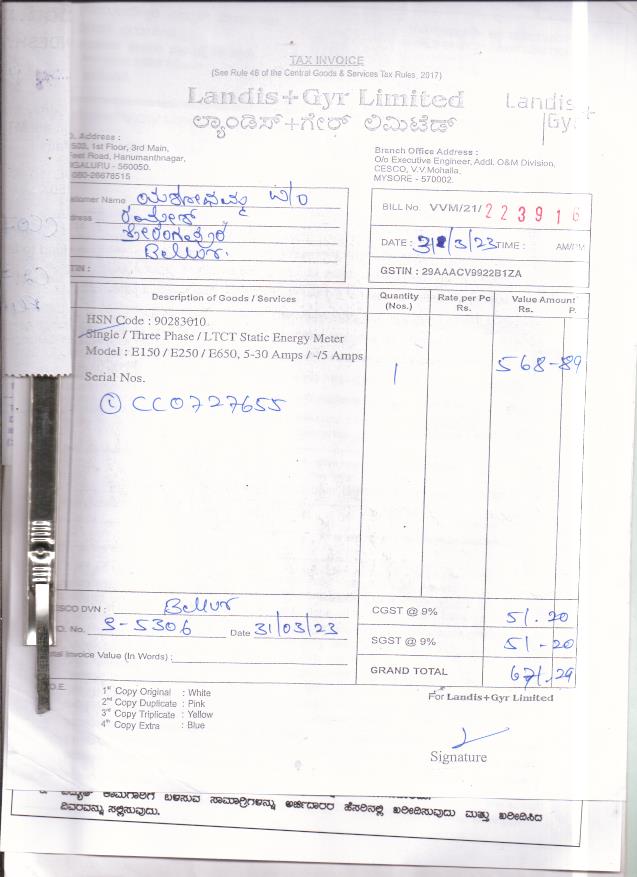 TAX INVOICE
(See Rule 46 of the Central Goods & Services Tax Rules, 2017)
Landis+Gyr Limited
ಲ್ಯಾಂಡಿಸ್+ಗೇರ್ ಲಿಮಿಟೆಡ್
Landis+
Gy
Address :
503, 1st Floor, 3rd Main,
Feet Road, Hanumanthnagar,
GALURU - 560050.
080-26678515
Branch Office Address :
O/o Executive Engineer, Addl. O&M Division,
CESCO, V.V.Mohalla,
MYSORE - 570002.
stomer Name ಯಶೋಧಮ್ಮ W/o
dress ರಮೇಶ್
Bellur.
TIN :
BILL No. VVM/21/ 2 2 3 9 1 6
DATE : 31/3/23 TIME : AM/PM
GSTIN : 29AAACV9922B1ZA
Description of Goods / Services Quantity (Nos.) Rate per Pc Rs. Value Amount Rs. P.
HSN Code : 90283010
Single / Three Phase / LTCT Static Energy Meter
Model : E150 / E250 / E650, 5-30 Amps / -/5 Amps 1 568-89
Serial Nos.
① CC0727655
ESCO DVN : Bellur
D. No. S-5306 Date 31/03/23
tal Invoice Value (In Words) :
CGST @ 9% 51.20
SGST @ 9% 51-20
GRAND TOTAL 671.29
O.E.
1st Copy Original : White
2nd Copy Duplicate : Pink
3rd Copy Triplicate : Yellow
4th Copy Extra : Blue
For Landis+Gyr Limited
Signature
ವಿದ್ಯುತ್ ಕಾಮಗಾರಿಗೆ ಬಳಸುವ ಸಾಮಾಗ್ರಿಗಳನ್ನು ಅರ್ಜಿದಾರರ ಹೆಸರಿನಲ್ಲಿ ಖರೀದಿಸುವುದು ಮತ್ತು ಖರೀದಿಸಿದ
ವಿವರವನ್ನು ಸಲ್ಲಿಸುವುದು.